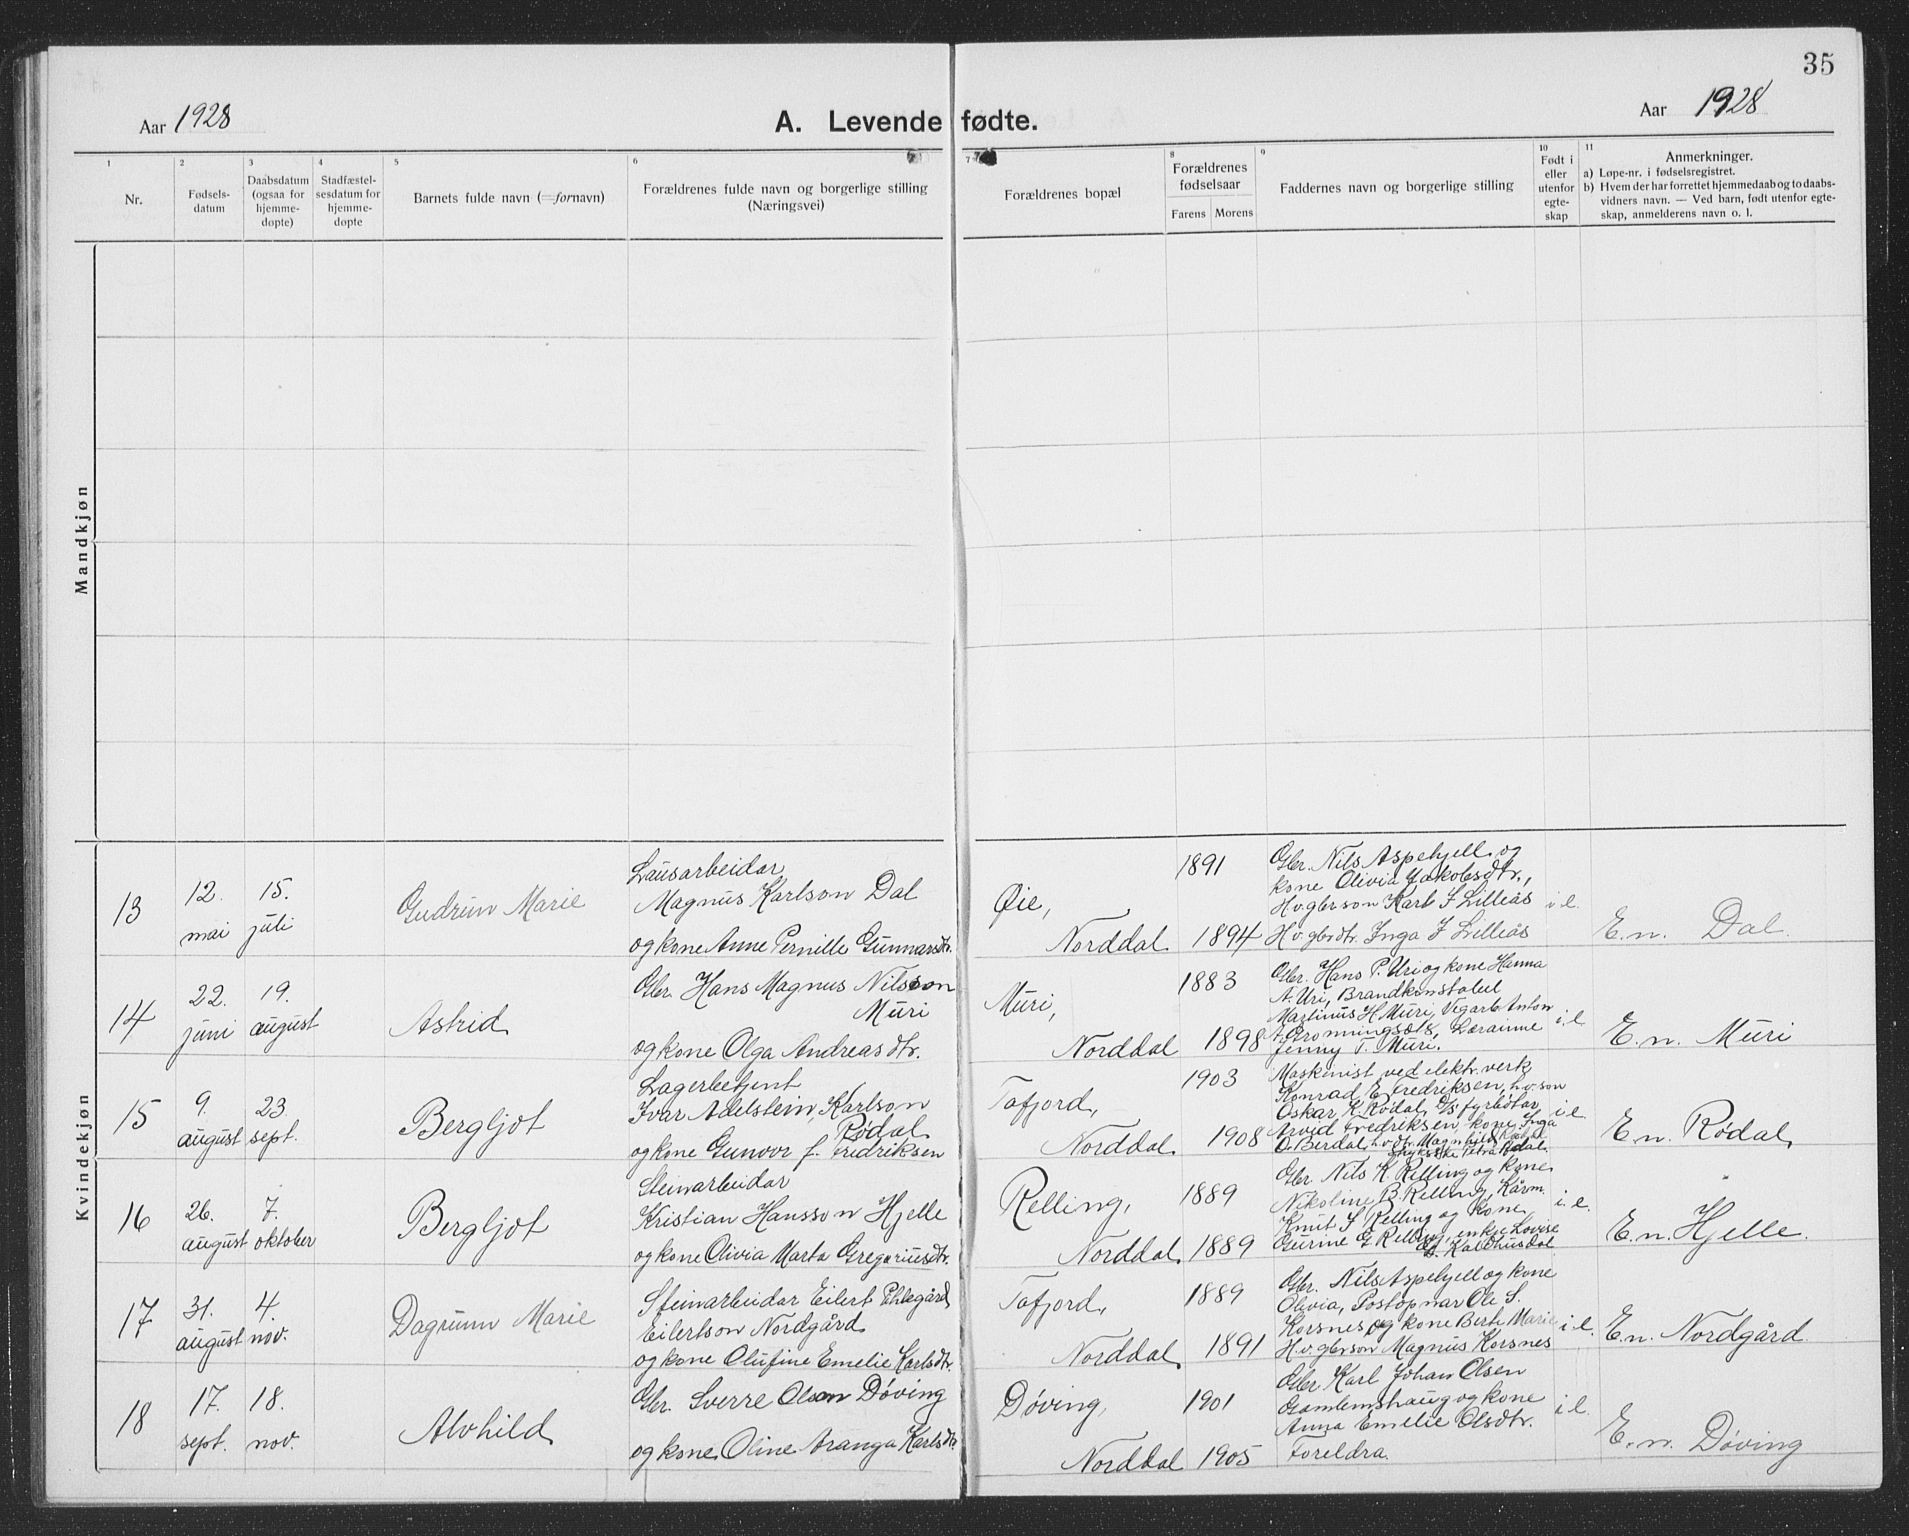 35
Aar 1928
A. Levende fødte.
Aar 1928
1
Nr.
2
Fødsels-
datum
3
Daabsdatum
(ogsaa for
hjemme-
døpte)
4
Stadfæstel-
sesdatum for
hjemme-
døpte
5
Barnets fulde navn (=fornavn)
6
Forældrenes fulde navn og borgerlige stilling
(Næringsvei)
7
Forældrenes bopæl
8
Forældrenes
fødselsaar
Farens Morens
9
Faddernes navn og borgerlige stilling
10
Født i
eller
utenfor
egte-
skap
11
Anmerkninger.
a) Løpe-nr. i fødselsregistret.
b) Hvem der har forrettet hjemmedaab og to daabs-
vidners navn. — Ved barn, født utenfor egte-
skap, anmelderens navn o. l.
Mandkjøn
Kvindekjøn
13
12.
mai
15.
juli
Gudrun Marie
Lausarbeidar
Magnus Karlson Dal
og kone Anne Pernille Gunnarsdtr.
Øie,
Norddal
1891
1894
Gbr. Nils Aspehjell og
kone Olivia Jakobsdtr.,
Hv. gbr son Karl J Lilleås
Hv. gbrdtr. Inga J Lilleås
i e.
E. n. Dal.
14
22.
juni
19.
august
Astrid
Gbr. Hans Magnus Nilsson
Muri
og kone Olga Andreasdtr.
Muri,
Norddal
1883
1898
Gbr. Hans P. Uri og kone Hanna
A. Uri, Brandkonstabel
Martinus H. Muri, Vegarb. Anton
A. Grønningsæter, Lærainne
Jenny T. Muri.
i e
E. n. Muri
15
9.
august
23
sept.
Bergljot
Lagerbetjent
Ivar Adelstein Karlson
Rødal
og kone Gunvor f. Fredriksen
Tafjord,
Norddal.
1903
1908
Maskenist ved elektr. verk
Konrad E. Fredriksen, hv. son
Oskar K. Rødal, D/s fyrbøtar
Arvid Fredriksen, kone Inga
O. Berdal, hv. dtr. Magnhild Rødal
Petra Rødal.
i e
E. n. Rødal.
16
26.
august
7.
oktober
Bergljot
Steinarbeidar
Kristian Hansson Hjelle
og kone Olivia Marta Gregoriusdtr.
Relling,
Norddal.
1889
1889
Gbr. Nils K. Relling og kone
Nikoline B. Relling, Kårm.
Knut S Relling og kone
Gurine G Relling, enkje Lovise
Kaldhusdal
i e.
E. n. Hjelle.
17
31.
august
4.
nov.
Dagrunn Marie
Steinarbeidar Eilert Ehlegård
Eilertson Nordgård
og kone Olufine Emelie Karlsdtr.
Tafjord,
Norddal.
1889
1891
Gbr. Nils Aspehjell og kone
Olivia, Postopnar Ole S.
Korsnes og kone Berte Marie
Hv. gbrson Magnus Korsnes
i e.
E. n. Nordgård.
18
17.
sept.
18.
nov.
Alvhild
Gbr. Sverre Olsen Døving
og kone Oline Aranga Karlsdtr.
Døving,
Norddal
1901
1905
Gbr. Karl Johan Olsen
Gamlemshaug og kone
Anna Emelie Olsdtr.
Foreldra.
i e.
E. n. Døving